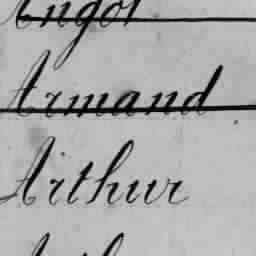 Angot
Armand
Arthur